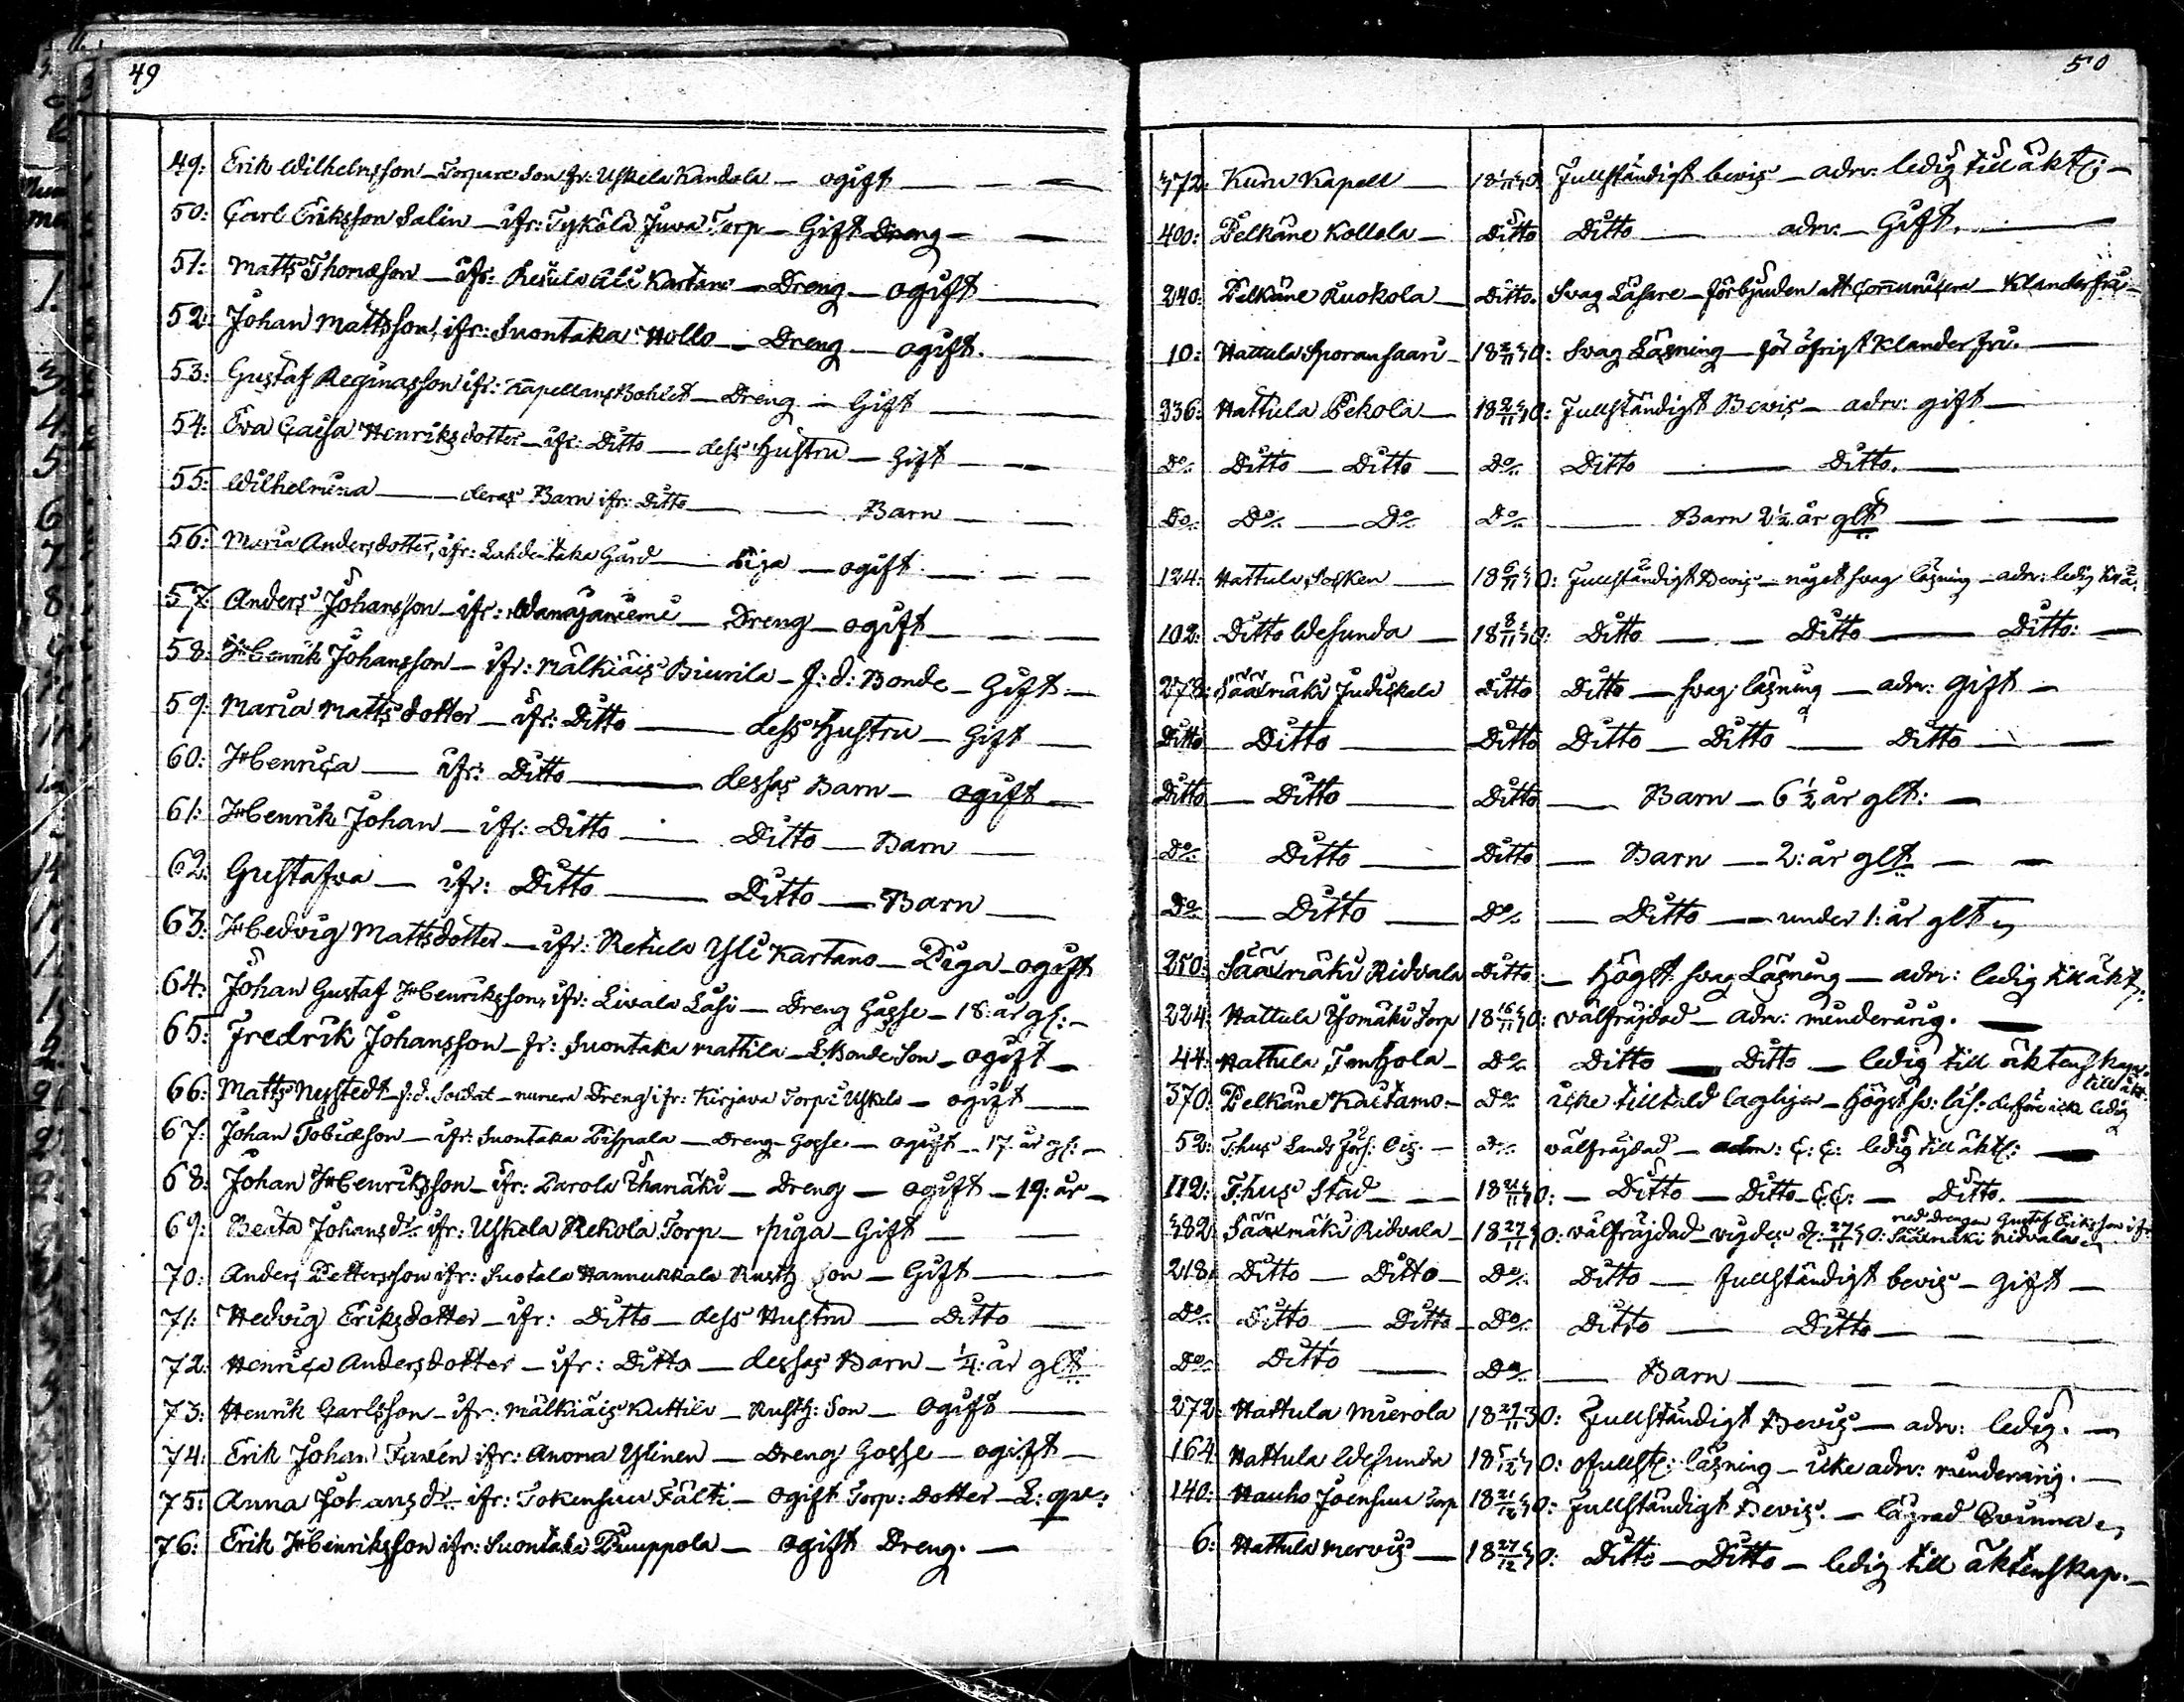 49
49: Erik Wilhelmsson – Torpare Son fr: Uskela Kandola – ogift
50: Carl Eriksson Salin – ifr: Tyköla Juva Torp – Gift Dreng
51: Matts Thomasson – ifr: Retula Ali Kartano – Dreng – ogift
52: Johan Mattsson, ifr: Suontaka Hollo – Dreng – ogift.
53: Gustaf Reginasson ifr: Kapellans Bohlet – Dreng – Gift
54: Eva Caisa Henriksdotter – ifr: Ditto – dess Hustru – Gift
55: Wilhelmina – deras Barn ifr: Ditto – Barn
56: Maria Andersdotter, ifr: Lahdentaka Gård – Piga – ogift
57: Anders Johansson – ifr: Wanajaniemi – Dreng – ogift
58: Henrik Johansson – ifr: Mälkiäis Biurila – f: d: Bonde – Gift
59: Maria Mattsdotter – ifr: Ditto – dess Hustru – Gift
60: Henrica – ifr: Ditto – dessas Barn – ogift
61: Henrik Johan – ifr: Ditto – Ditto – Barn
62: Gustafva – ifr: Ditto – Ditto – Barn
63: Hedvig Mattsdotter – ifr: Retula Yli Kartano – Piga – ogift
64: Johan Gustaf Henriksson, ifr: Livala Läsi – Dreng Gosse – 18: år gl:
65: Fredrik Johansson – fr: Suontaka Mattila – L. Bonde Son – ogift
66: Matts Nystedt – f: d. Soldat – numera Dreng ifr: Kirjava Torp i Uskela – ogift
67: Johan Tobiasson – ifr: Suontaka Pispala – Dreng-Gosse – ogift – 17. år gl:
68: Johan Henriksson – ifr: Parola Ihamäki – Dreng – ogift – 19: år
69: Beata Johansdr. ifr: Uskela Rekola Torp – piga – Gift
70: Anders Pettersson ifr: Suotala Hannukkala Rusth Son – Gift
71: Hedvig Eriksdotter – ifr: Ditto – dess Hustru – Ditto
72: Henrica Andersdotter – ifr: Ditto – dessas Barn – 1/4: år glt
73: Henrik Carlsson – ifr: Mälkiäis Kuttila – Rusth: Son – ogift
74: Erik Johan Favén ifr: Anoma Ylinen – Dreng Gosse – ogift
75: Anna Johansdr. ifr: Tokensuu Fälti – ogift Torp: Dotter –
76: Erik Henriksson ifr: Suontaka Pumppola – ogift Dreng.
50
472: Kuru Kapell – Fullständigt bevis – adm: ledig till äkts:
400: Pelkäne Kollola – Ditto Ditto – adm: Gift.
240: Pelkäne Ruokola – Ditto. Svag Läsare – förbjuden att Communicera – Klanderfri
10: Hattula Sporansaari – 18 2/11 40: Svag Läsning – för öfrigt Klanderfri.
236: Hattula Pekola – 18 2/11 40: Fullständigt Bevis – adm: gift
Do. Ditto – Ditto – Do. Ditto – Ditto.
Do. Do. – Do. Do. – Barn 2 1/2 år glt
124: Hattula Socken – 18 6/11 40: Fullständigt Bevis – något svag läsning – adm: ledig
102: Ditto Wesunda – 18 8/11 40: Ditto – Ditto – Ditto:
278: Sääxmäki Judickala Ditto Ditto – svag läsning – adm: gift
Ditto – Ditto – Ditto Ditto – Ditto – Ditto
Ditto – Ditto – Ditto – Barn – 6 1/2 år glt:
Do. Ditto – Ditto – Barn – 2: år glt
Do. – Ditto – Do. – Ditto – under 1: år glt
250: Sääxmäki Ridvala Ditto – Högst svag Läsning – adm: ledig till äkt:
224: Hattula Isomäki Torp 18 16/11 40: välfräjdad – adm: minderårig.
44: Hattula Tenhola – Do. Ditto – Ditto – ledig till äktenskap.
370: Pelkäne Kaitamo – Do. icke tilltald lagligen – Högst sv: läs: derföre icke ledig till äkt.
52: T:hus Lands Förs: – Do. välfräjdad – adm: &: &: ledig till äkts:
112: T:hus Stad – 18 21/11 40: – Ditto – Ditto – &: &: – Ditto.
482: Sääxmäki Ridvala – 18 27/11 40: välfräjdad – vigdes d: 27/11 40: med drengen Gustaf Eriksson ifr: Sääxmäki Ridvala
218: Ditto – Ditto – Do. Ditto – fullständigt bevis – Gift
Do. Ditto – Ditto – Do. Ditto – Ditto
Do. Ditto – Do. – Barn
272: Hattula Mierola 18 29/11 30: Fullständigt Bevis – adm: ledig.
164: Hattula Wesunda 18 5/12 40: ofullst: läsning – icke adm: minderårig.
140: Hauho Joensuu Torp 18 21/12 40: Fullständigt Bevis. – lägrad Qvinna
6: Hattula Mervis – 18 27/12 40: Ditto – Ditto – ledig till äktenskap.